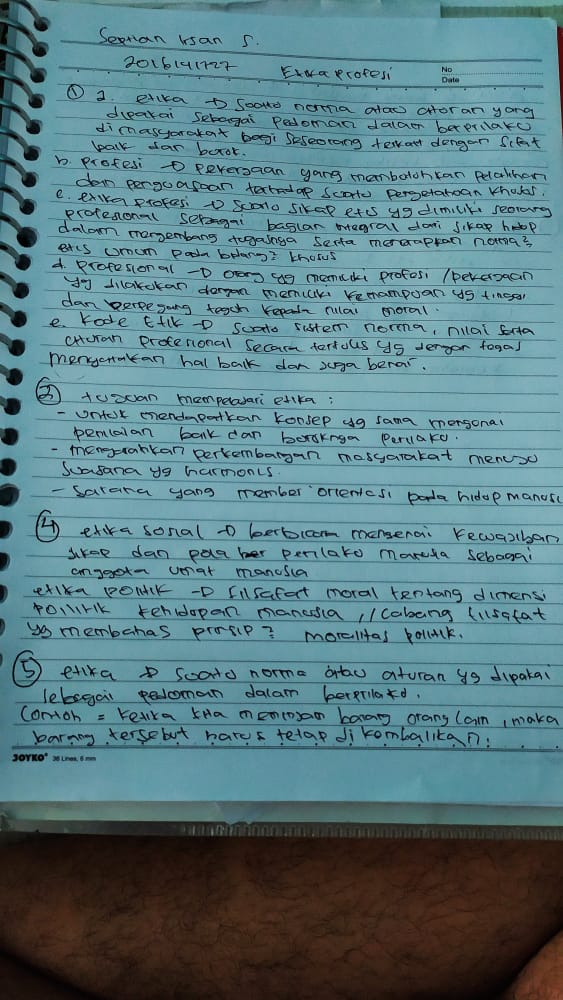 Septian Irsan S.
2016141727 Etika Profesi No
Date
① a. etika → suatu norma atau aturan yang
dipakai sebagai pedoman dalam berprilaku
di masyarakat bagi seseorang terkait dengan sifat
baik dan buruk.
b. profesi → pekerjaan yang membutuhkan pelatihan
dan penguasaan terhadap suatu pengetahuan khusus.
c. etika profesi → suatu sikap etis yg dimiliki seorang
profesional sebagai bagian integral dari sikap hidup
dalam mengembang tugasnya serta menerapkan norma2
etis umum pada bidang2 khusus
d. profesional → orang yg memiliki profesi / pekerjaan
yg dilakukan dengan memiliki kemampuan yg tinggi
dan berpegang teguh kepada nilai moral.
e. Kode Etik → suatu sistem norma, nilai serta
aturan profesional secara tertulis yg dengan tegas
menyatakan hal baik dan juga benar.
② tujuan mempelajari etika :
- untuk mendapatkan konsep yg sama mengenai
penilaian baik dan buruknya perilaku.
- mengarahkan perkembangan masyarakat menuju
suasana yg harmonis.
- sarana yang member orientasi pada hidup manusi
④ etika sosial → berbicara mengenai kewajiban
sikap dan pola ber perilaku manusia sebagai
anggota umat manusia
etika politik → filsafat moral tentang dimensi
politik kehidupan manusia // Cabang filsafat
yg membahas prinsip2 moralitas politik.
⑤ etika → suatu norma atau aturan yg dipakai
sebagai pedoman dalam berprilaku.
Contoh = ketika kita meminjam barang orang lain, maka
barang tersebut harus tetap di kembalikan.
JOYKO 36 Lines, 6 mm